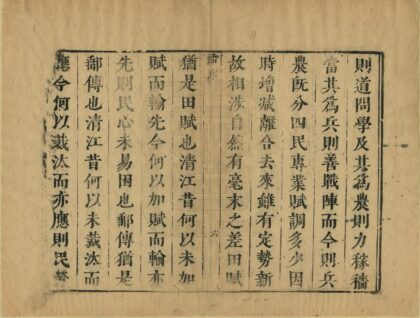 則道問學及其爲農則力稼穡
當其爲兵則善戰陣而今則兵
農旣分四民專業賦調多少因
時增減離合去來雖有定勢新
故相涉自然有毫末之差田賦
猶是田賦也清江昔何以未加
賦而輸先今何以加賦而輸亦
先則民心未易困也郵傳猶是
郵傳也清江昔何以未裁汰而
應今何以裁汰而亦應則民